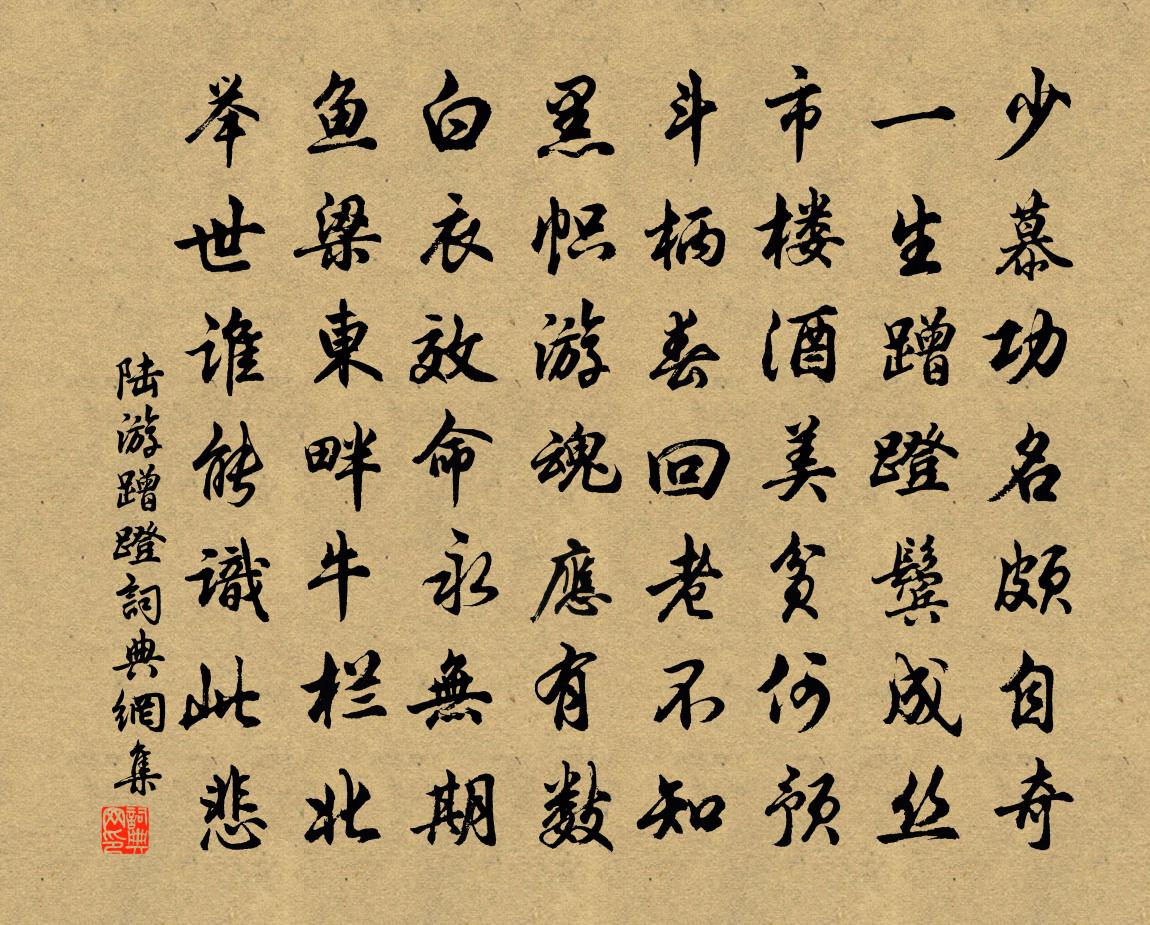 少慕功名颇自奇
一生蹭蹬鬓成丝
市楼酒美贫何预
斗柄春回老不知
黑帜游魂應有数
白衣效命永無期
鱼梁東畔牛栏北
举世谁能識此悲
陆游蹭蹬詞典網集
詞典网印